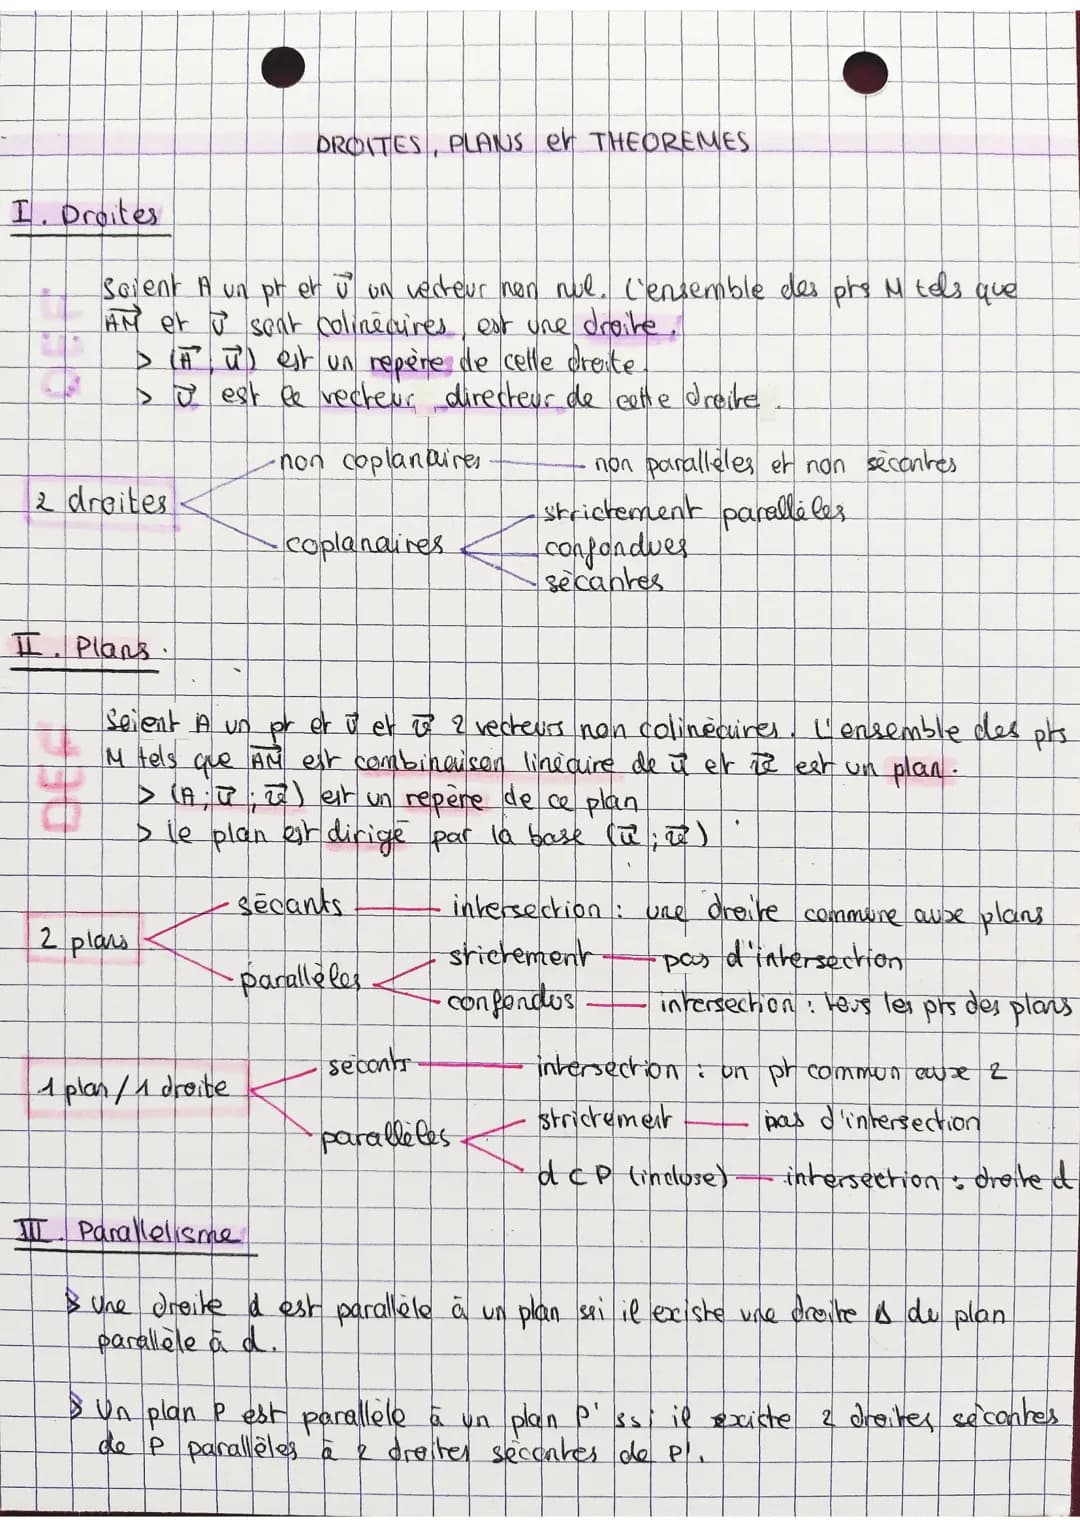 DROITES, PLANS et THEOREMES
I. Droites
DEF
Soient A un pt et u⃗ un vecteur non nul. L'ensemble des pts M tels que
AM⃗ et u⃗ sont colinéaires, est une droite.
> (A⃗, u⃗) est un repère de cette droite.
> u⃗ est le vecteur directeur de cette droite.
2 droites
non coplanaires — non parallèles et non sécantes
coplanaires
strictement parallèles
confondues
sécantes
II. Plans.
DEF
Soient A un pt et u⃗ et v⃗ 2 vecteurs non colinéaires. L'ensemble des pts
M tels que AM⃗ est combinaison linéaire de u⃗ et v⃗ est un plan.
> (A; u⃗; v⃗) est un repère de ce plan
> le plan est dirigé par la base (u⃗; v⃗)
2 plans
sécants — intersection : une droite commune aux plans
parallèles
strictement — pas d'intersection
confondus — intersection : tous les pts des plans
1 plan / 1 droite
sécants — intersection : un pt commun aux 2
parallèles
strictement — pas d'intersection
d ⊂ P (incluse) — intersection : droite d
III. Parallelisme
> Une droite d est parallèle à un plan ssi il existe une droite Δ du plan
parallèle à d.
> Un plan P est parallèle à un plan P' ssi il existe 2 droites sécantes
de P parallèles à 2 droites sécantes de P'.